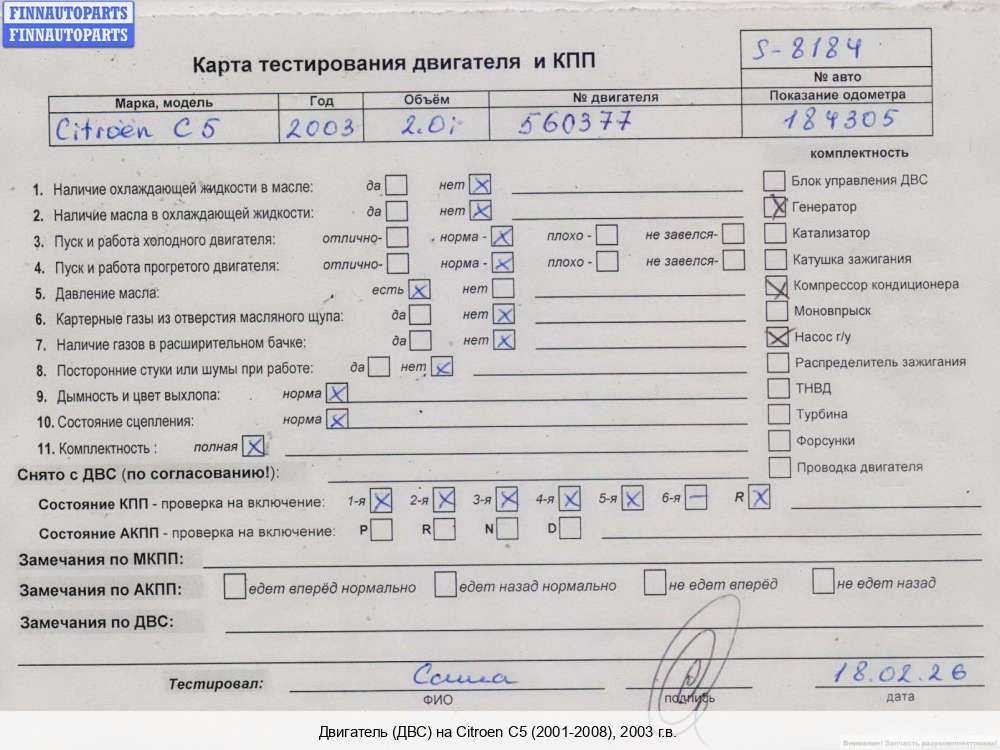 FINNAUTOPARTS
FINNAUTOPARTS
Карта тестирования двигателя и КПП
S-8184
№ авто
Марка, модель Год Объём № двигателя Показание одометра
Citroen C5 2003 2.0i 560377 184305
комплектность
1. Наличие охлаждающей жидкости в масле: да нет X
2. Наличие масла в охлаждающей жидкости: да нет X
3. Пуск и работа холодного двигателя: отлично- норма - X плохо - не завелся-
4. Пуск и работа прогретого двигателя: отлично- норма - X плохо - не завелся-
5. Давление масла: есть X нет
6. Картерные газы из отверстия масляного щупа: да нет X
7. Наличие газов в расширительном бачке: да нет X
8. Посторонние стуки или шумы при работе: да нет X
9. Дымность и цвет выхлопа: норма X
10. Состояние сцепления: норма X
11. Комплектность : полная X
Блок управления ДВС
X Генератор
Катализатор
Катушка зажигания
X Компрессор кондиционера
Моновпрыск
X Насос г/у
Распределитель зажигания
ТНВД
Турбина
Форсунки
Проводка двигателя
Снято с ДВС (по согласованию!):
Состояние КПП - проверка на включение: 1-я X 2-я X 3-я X 4-я X 5-я X 6-я — R X
Состояние АКПП - проверка на включение: P R N D
Замечания по МКПП:
Замечания по АКПП: едет вперёд нормально едет назад нормально не едет вперёд не едет назад
Замечания по ДВС:
Тестировал: Саша 18.02.26
ФИО подпись дата
Двигатель (ДВС) на Citroen C5 (2001-2008), 2003 г.в.
Внимание! Запчасть разукомплектована!